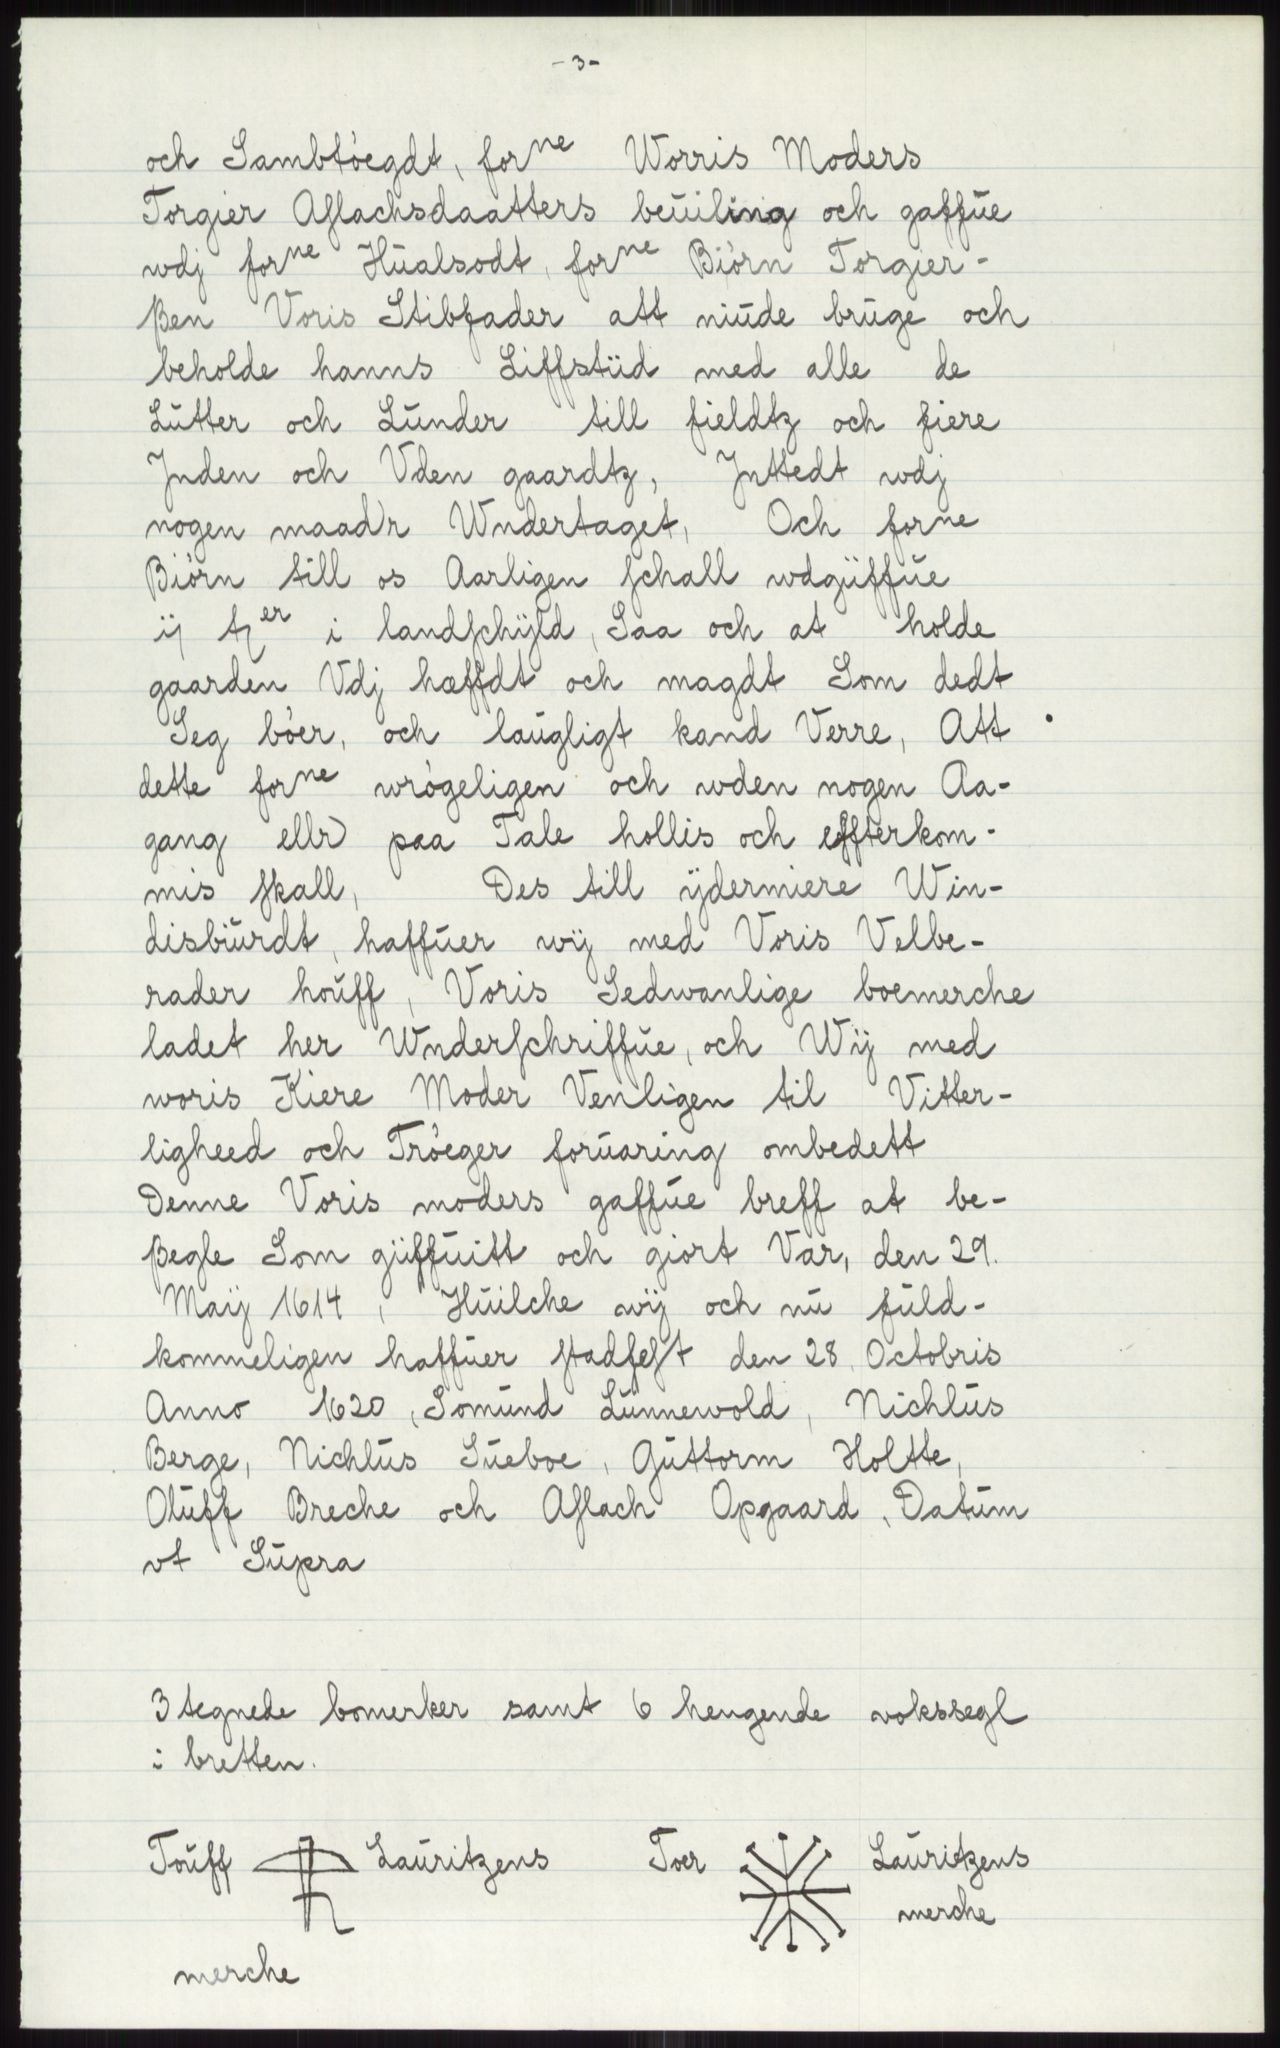 - 3 -
och Sambtóegdt, forⁿᵉ Worris Moders
Torgier Aslachsdaatters beuiling och gaffue
wdj forⁿᵉ Hualsodt, forⁿᵉ Biórn Torgier-
ßen Voris Stibfader att niude bruge och
beholde hanns Liffstüd med alle de
Lutter och Lunder till fieldtz och fiere
Jnden och Vden gaardtz, Jnttedt wdj
nogen maad'r Wndertaget, Och forne
Biórn till os Aarligen schall wdgüffue
ij tzᵉʳ i landschÿld, Saa och at holde
gaarden Vdj hæffdt och magdt Som dedt
Seg bóer, och laugligt kand Verre, Att
dette forⁿᵉ wrógeligen och wden nogen Aa-
gang ellr paa Tale hollis och effterkom-
mis skall, Des till ÿdermiere Win-
disburdt, haffuer wÿ med Voris Velbe-
rader houff, Voris Sedwanlige boemerche
ladet her Wnderschriffue, och Wÿ med
woris Kiere Moder Venligen til Vitter-
ligheed och Tróeger foruaring ombedett
Denne Voris moders gaffue breff at be-
ßegle Som güffuitt och giort Var, den 29.
Maÿ 1614, Huilche wÿ och nu fuld-
kommeligen haffuer stadfest den 28. Octobris
Anno 1620, Somund Lunnewold, Nichlus
Berge, Nichlus Sueboe, Guttorm Holtte,
Oluff Breche och Aslach Opgaard, Datum
vt Supra
3 tegnede bomerker samt 6 hengende vokssegl
i bretten.
Touff Lauritzens Toer Lauritzens
merche
merche